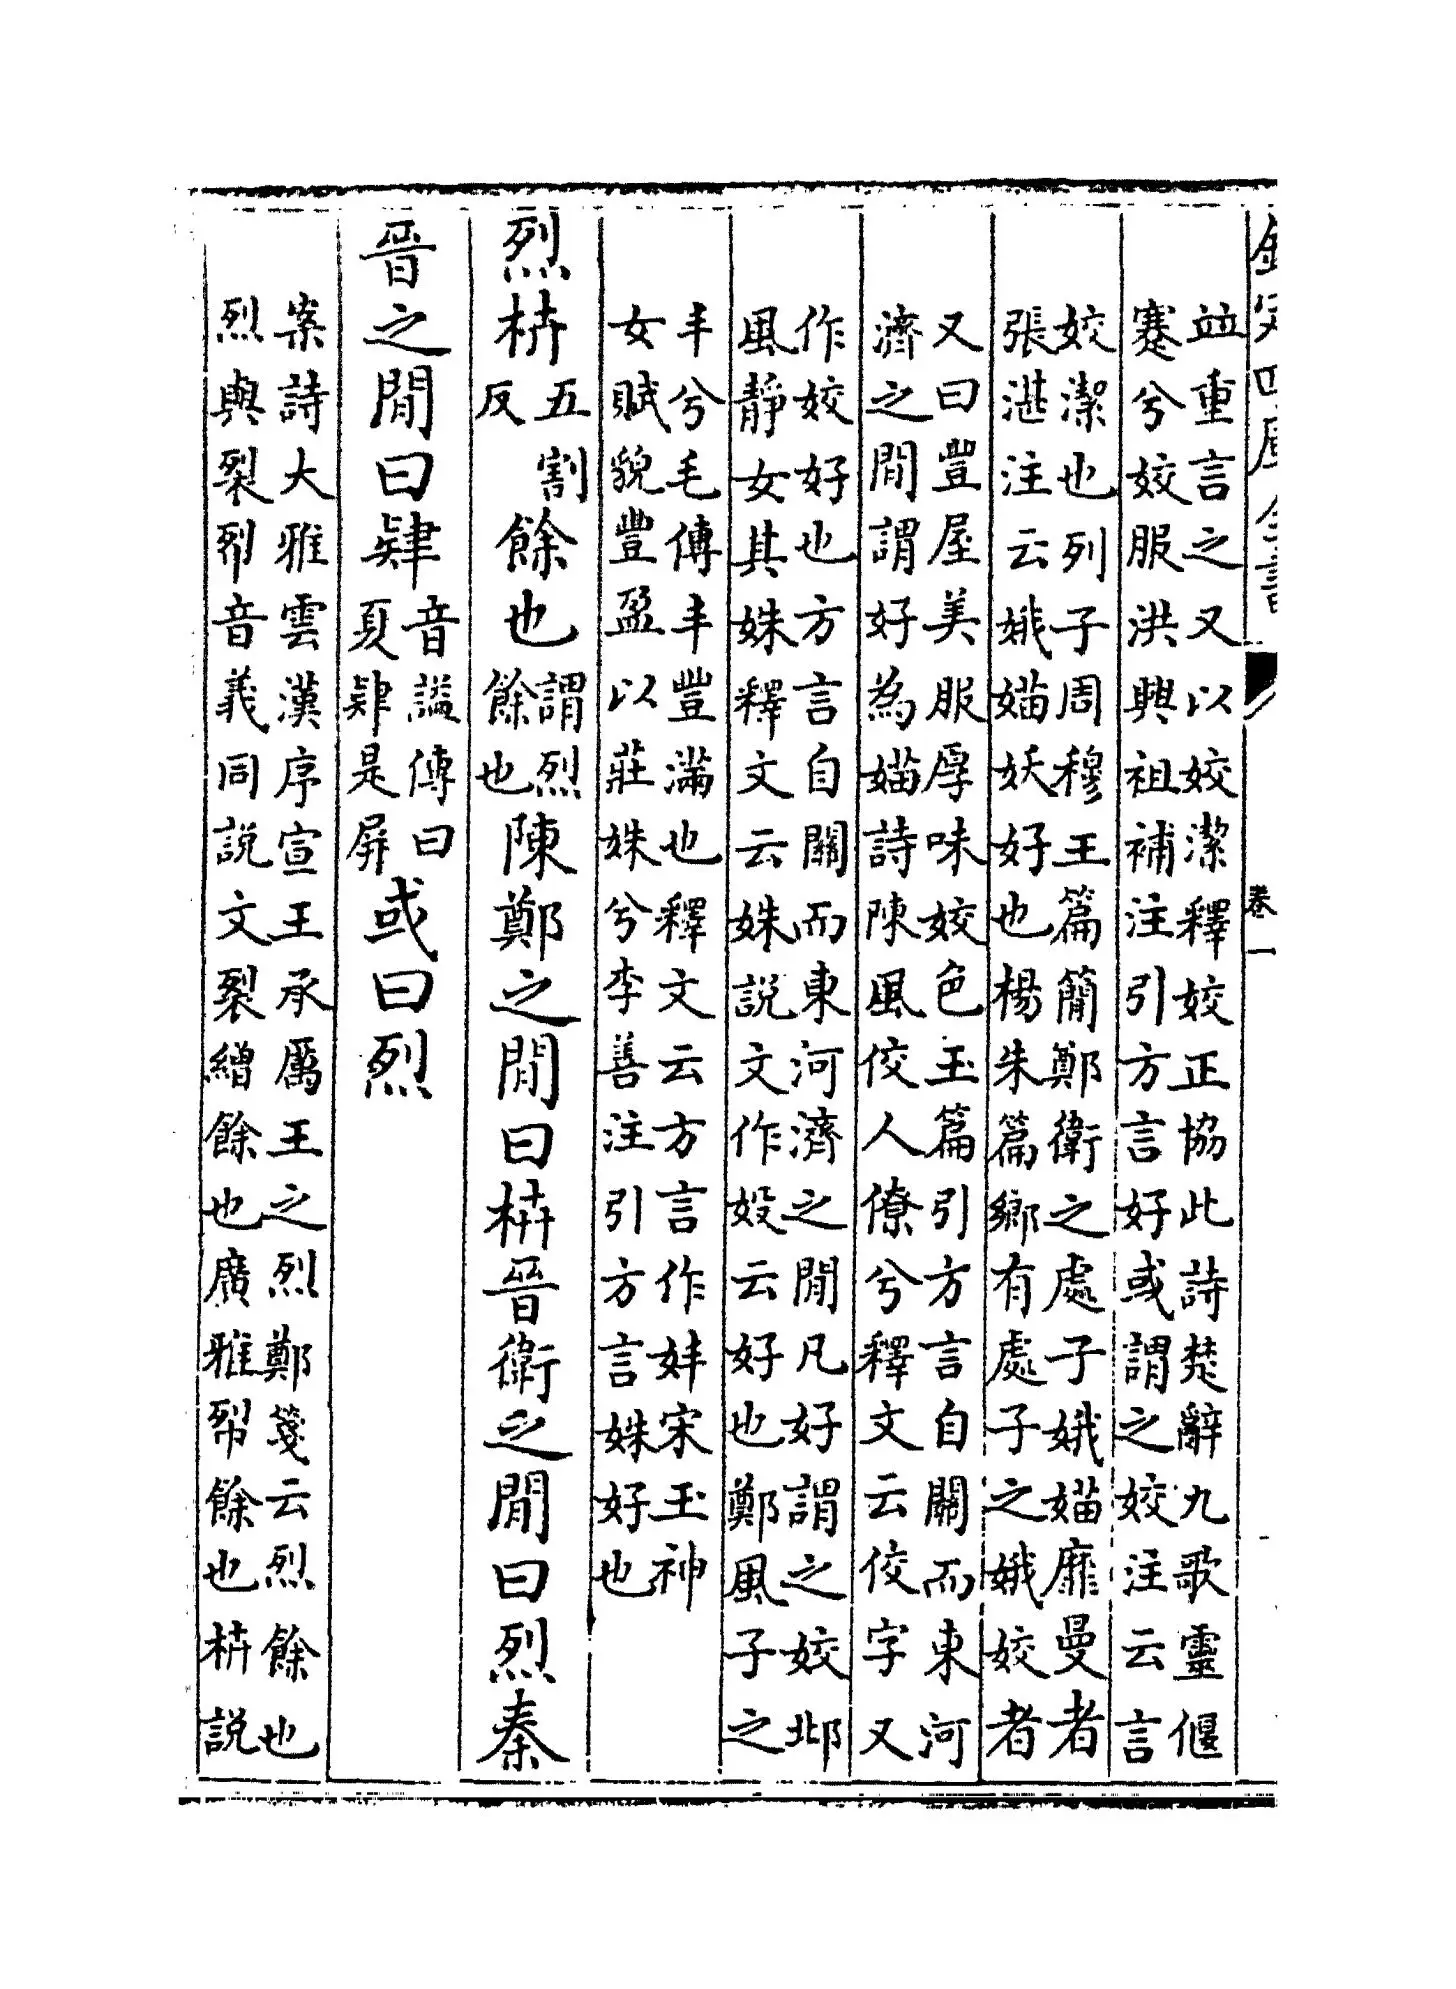 欽定四庫全書 卷一
並重言之又以姣潔釋姣正協此詩楚辭九歌靈偃
蹇兮姣服洪興祖補注引方言好或謂之姣注云言
姣潔也列子周穆王篇簡鄭衛之處子娥媌靡曼者
張湛注云娥媌妖好也楊朱篇鄉有處子之娥姣者
又曰豐屋美服厚味姣色玉篇引方言自關而東河
濟之閒謂好為媌詩陳風佼人僚兮釋文云佼字又
作姣好也方言自關而東河濟之閒凡好謂之姣邶
風靜女其姝釋文云姝說文作㚼云好也鄭風子之
丰兮毛傳丰豐滿也釋文云方言作妦宋玉神
女賦貌豐盈以莊姝兮李善注引方言姝好也
烈枿五割反餘也謂烈餘也陳鄭之閒曰枿晉衛之閒曰烈秦
晉之閒曰肄音謚傳曰夏肄是屏或曰烈
案詩大雅雲漢序宣王承厲王之烈鄭箋云烈餘也
烈與裂音義同說文裂繒餘也廣雅餘也枿說